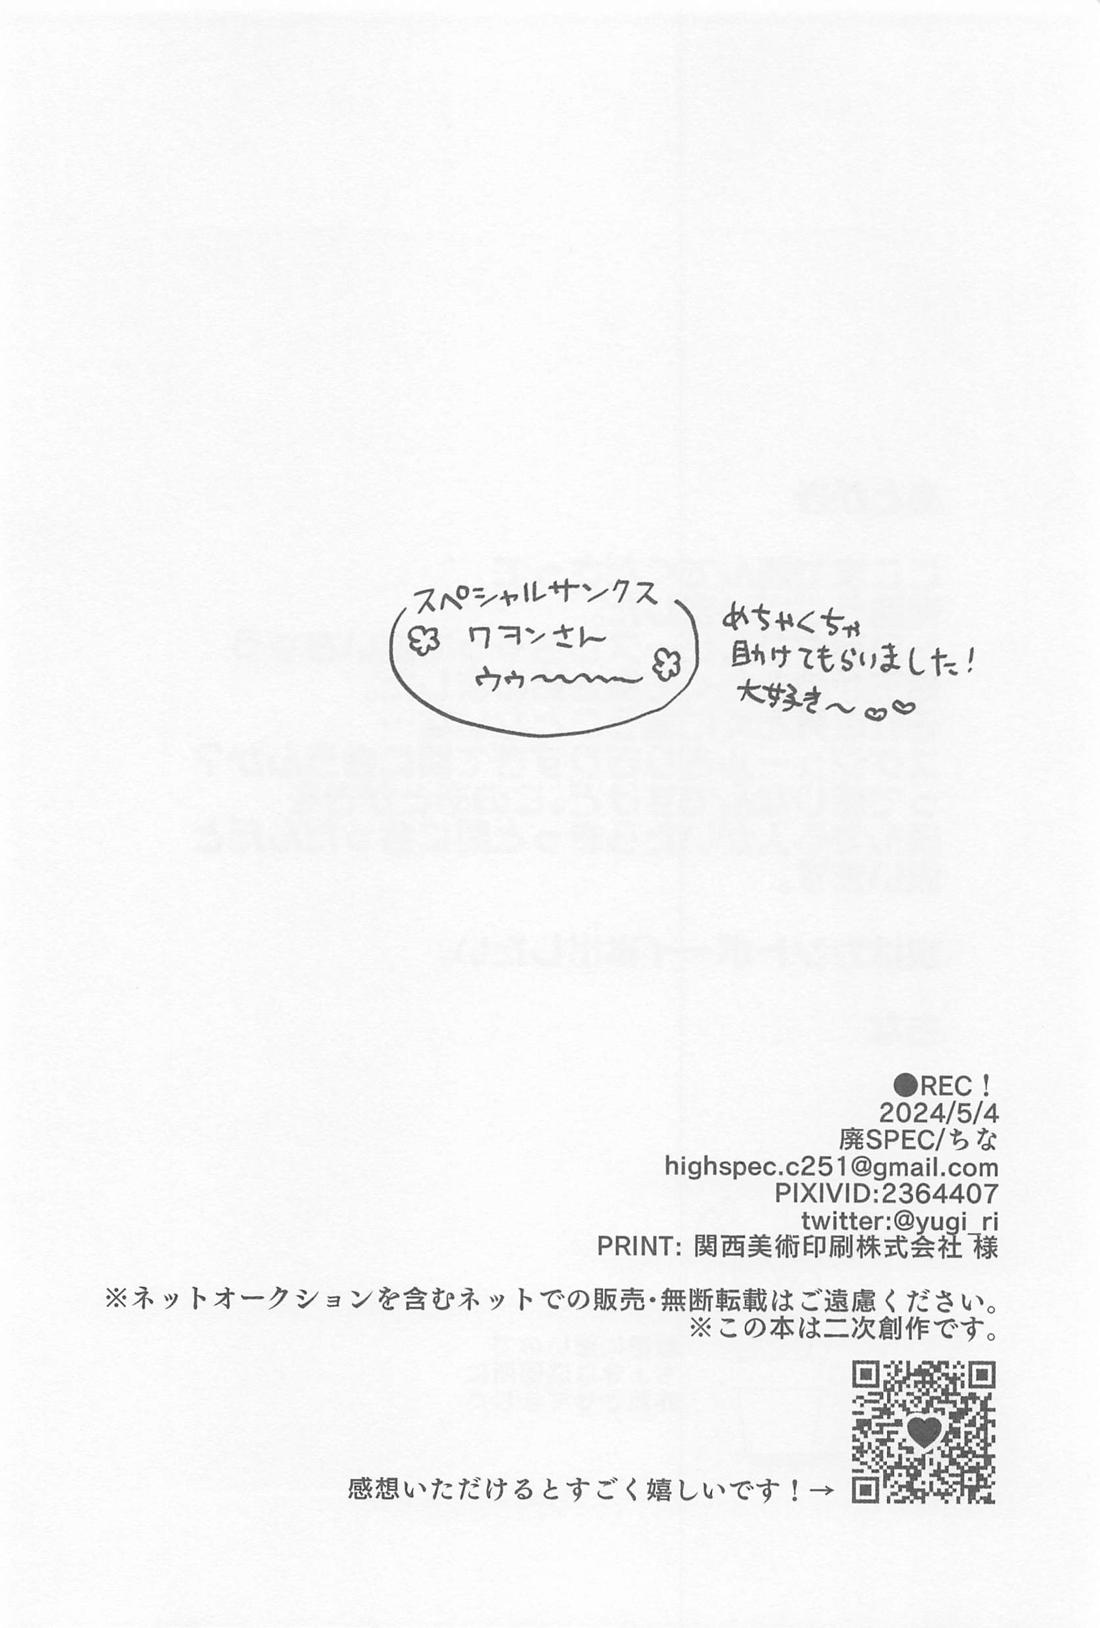 スペシャルサンクス
ワヨンさん
ウゥ〜〜〜〜
めちゃくちゃ
助けてもらいました!
大好き〜♡♡
●REC！
2024/5/4
廃SPEC/ちな
highspec.c251@gmail.com
PIXIVID:2364407
twitter:@yugi_ri
PRINT: 関西美術印刷株式会社 様
※ネットオークションを含むネットでの販売・無断転載はご遠慮ください。
※この本は二次創作です。
感想いただけるとすごく嬉しいです！→